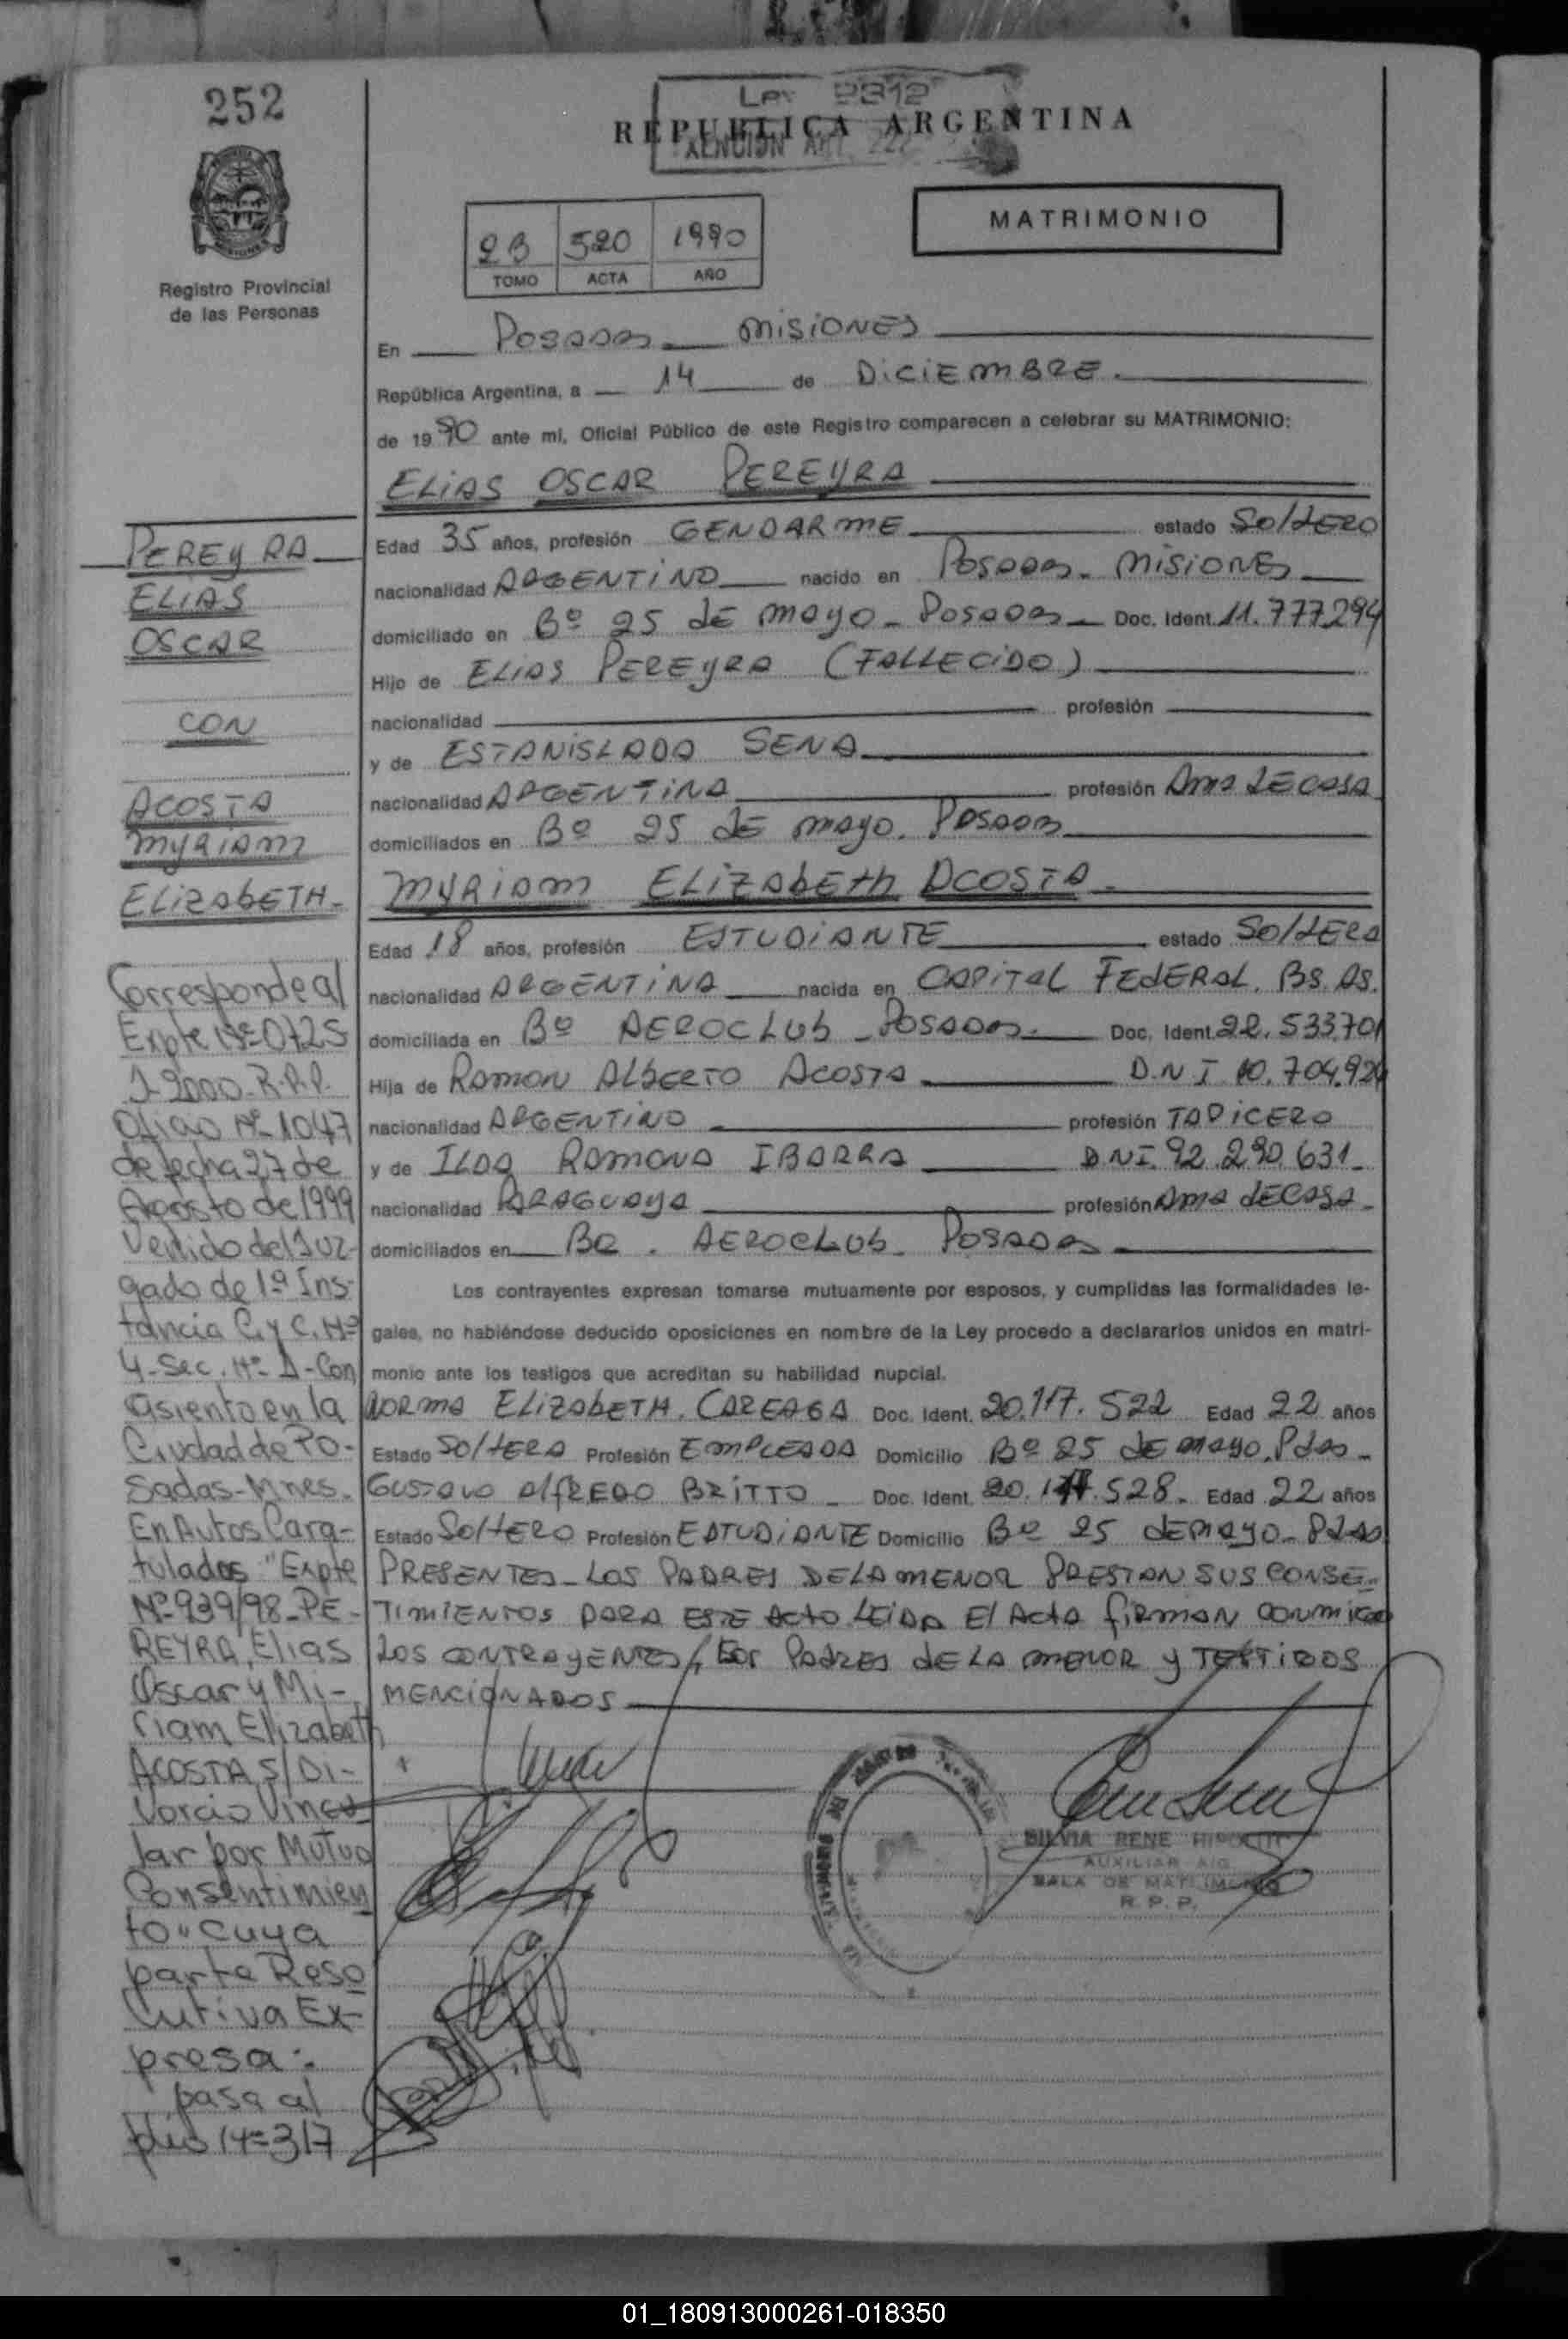 252
Registro Provincial
de las Personas
Ley 2312
REPUBLICA ARGENTINA
MATRIMONIO
2B 520 1990
TOMO ACTA AÑO
En Posadas - MISIONES
República Argentina, a 14 de DICIEMBRE.
de 1990 ante mi, Oficial Público de este Registro comparecen a celebrar su MATRIMONIO:
ELIAS OSCAR PEREYRA
Edad 35 años, profesión GENDARME estado SOLTERO
nacionalidad ARGENTINO nacido en Posadas - MISIONES
domiciliado en Bº 25 de mayo - Posadas - Doc. Ident. 11.777.294
Hijo de ELIAS PEREYRA (FALLECIDO)
nacionalidad profesión
y de ESTANISLADA SENA
nacionalidad ARGENTINA profesión Ama de casa
domiciliados en Bº 25 de mayo. Posadas
MYRIAM ELIZAbETh ACOSTA -
Edad 18 años, profesión ESTUDIANTE estado SOLTERA
nacionalidad ARGENTINA nacida en CAPITAL FEDERAL. BS. AS.
domiciliada en Bº AEROCLUb - Posadas. Doc. Ident. 22.533.701
Hija de RAMON ALbERTO ACOSTA D.N.I 10.704.92
nacionalidad ARGENTINO profesión TAPICERO
y de ILDA RAMONA IBARRA D.N.I. 92.290.631-
nacionalidad PARAGUAYA profesión Ama de casa -
domiciliados en Bº. AEROCLUb - Posadas
Los contrayentes expresan tomarse mutuamente por esposos, y cumplidas las formalidades le-
gales, no habiéndose deducido oposiciones en nombre de la Ley procedo a declararlos unidos en matri-
monio ante los testigos que acreditan su habilidad nupcial.
NORMA ELIZAbETH. CAREAGA Doc. Ident. 20.117.522 Edad 22 años
Estado SOLTERA Profesión EMPLEADA Domicilio Bº 25 de mayo. Pdas -
GUSTAVO AlfREDO BRITTO - Doc. Ident. 20.117.528. Edad 22 años
Estado SOLTERO Profesión ESTUDIANTE Domicilio Bº 25 de mayo - Pdas
PRESENTES - LOS PADRES DE LA MENOR PRESTAN SUS CONSE-
TIMIENTOS PARA ESTE ACTO LEIDA El ActA fIRMAN CONMIGO
LOS CONTRAYENTES, LOS PADRES dE LA MENOR y TESTIGOS
MENCIONADOS
SILVIA RENE
AUXILIAR
SALA DE MATRIMONIO
R. P. P.
PEREYRA
ELIAS
OSCAR
CON
ACOSTA
MYRIAM
ELIZAbETH -
Corresponde al
Expte Nº 0725
J-2000-R.P.P.
Oficio Nº 1047
de fecha 27 de
Agosto de 1999
Venido del Juz-
gado de 1º Ins-
tancia C. y C. Nº
4-Sec. Nº 1-Con
asiento en la
Ciudad de Po-
sadas-Mnes.
En Autos Cara-
tulados "Expte
Nº 939/98-PE-
REYRA, Elias
Oscar y Mi-
riam Elizabeth
ACOSTA S/Di-
vorcio Vincu
lar por Mutuo
Consentimien
to" cuya
parte Reso
lutiva Ex-
presa:
pasa al
folio Nº 317
01_180913000261-018350